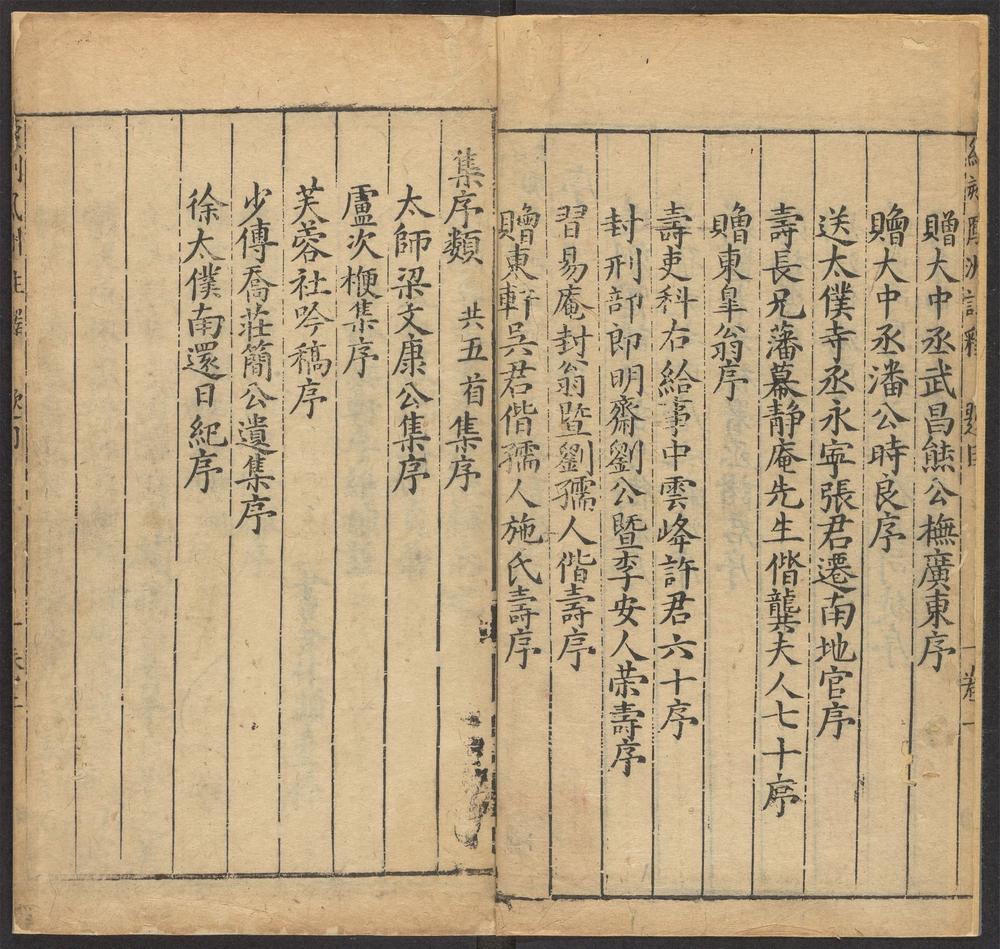 贈大中丞武昌熊公橅廣東序
贈大中丞潘公時良序
送太僕寺丞永寜張君遷南地官序
壽長兄藩幕静庵先生偕龔夫人七十序
贈東臯翁序
壽吏科右給事中雲峰許君六十序
封刑部郎明齋劉公暨李安人荣壽序
習易庵封翁暨劉孺人偕壽序
贈東軒吳君偕孺人施氏壽序
集序類 共五首集序
太師梁文康公集序
盧次楩集序
芙蓉社吟稿序
少傅喬莊簡公遺集序
徐太僕南還日紀序